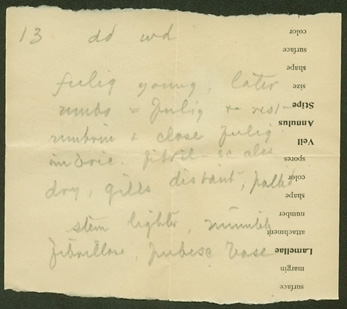 13 dd wd
fulig young, later
umbo & fulig
umbrine & close fulig
imbric. fibril - scales
dry, gills distant, pallid
stem lighter, minutely
fibrillose, pubesc base
color
surface
shape
size
Stipe
Annulus
Veil
spores
color
shape
number
attachment
Lamellae
margin
surface